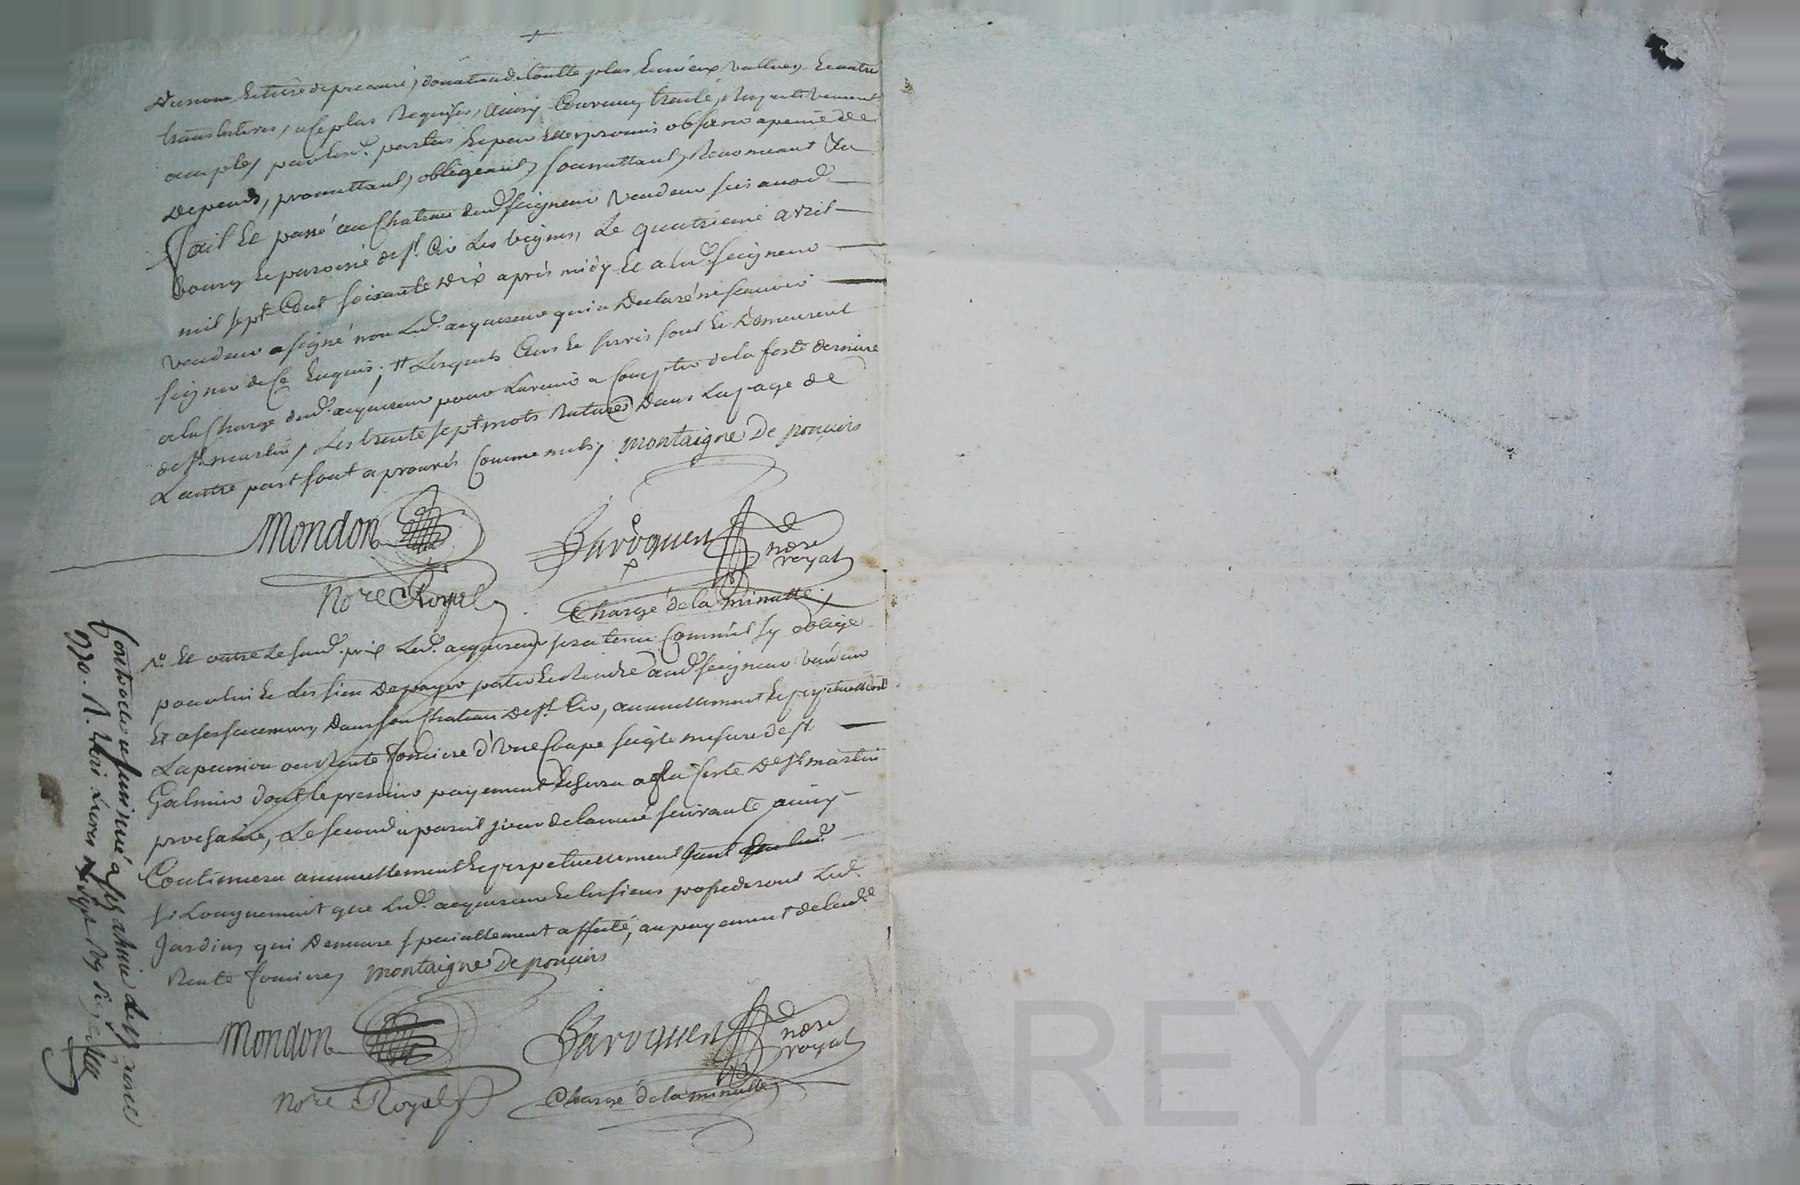 de nom et titre de precaire, donation de toutte plus et mieux vallue, et autre
translatives, a ce plus requises, ainsy convenu, traité, respectivement
accepté, par les d. parties et par elles promis observer a peine de
depends, promettant, obligeant, soumettant, renoncant &a
fait et passé au chateau dud. seigneur vendeur sis aud.
bourg et paroisse de st. Cir les vignes, le quatrieme avril
mil sept cent soixante dix après midy et a led. seigneur
vendeur signé non led. acquereur qui a declaré ne scavoir
signer de ce enquis; # lesquels cens et servis sont et demeurent
a la charge dud. acquereur pour l'avenir a compter de la feste derniere
de st. martin, les trente sept mots raturés dans la page de
l'autre part sont aprouvés comme nuls, montaigne De poncins
Mondon
Baroquen
nore
royal
Nore Royal
Chargé de la minutte
Et outre le susd. prix led. acquereur sera tenu comme il sy oblige
pour lui et les sien de payer porter et rendre aud. seigneur vendeur
et a ses successeurs, dans son chateau de st. Cir, annuellement et perpetuellement
la pension ou rente fonciere d'une coupe seigle mesure de st.
Galmier dont le premier payement echerra a la feste de st. martin
prochaine, le second a pareil jour de l'année suivante ainsy
continuera annuellement et perpetuellement tant
si longuement que led. acquereur et les siens possederont led.
Jardin, qui demeure speciallement affecté, au payement de lad.
Rente fonciere, montaigne De poncins
Mondon
Baroquen
nore
royal
Nore Royal
Chargé de la minutte
CHAREYRON